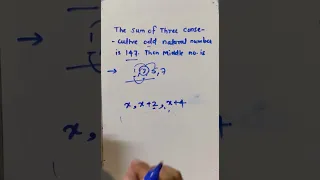 The sum of Three conse-
-cutive odd natural number
is 147. Then Middle no. is
→ 1 3 5, 7
x, x+2, x+4